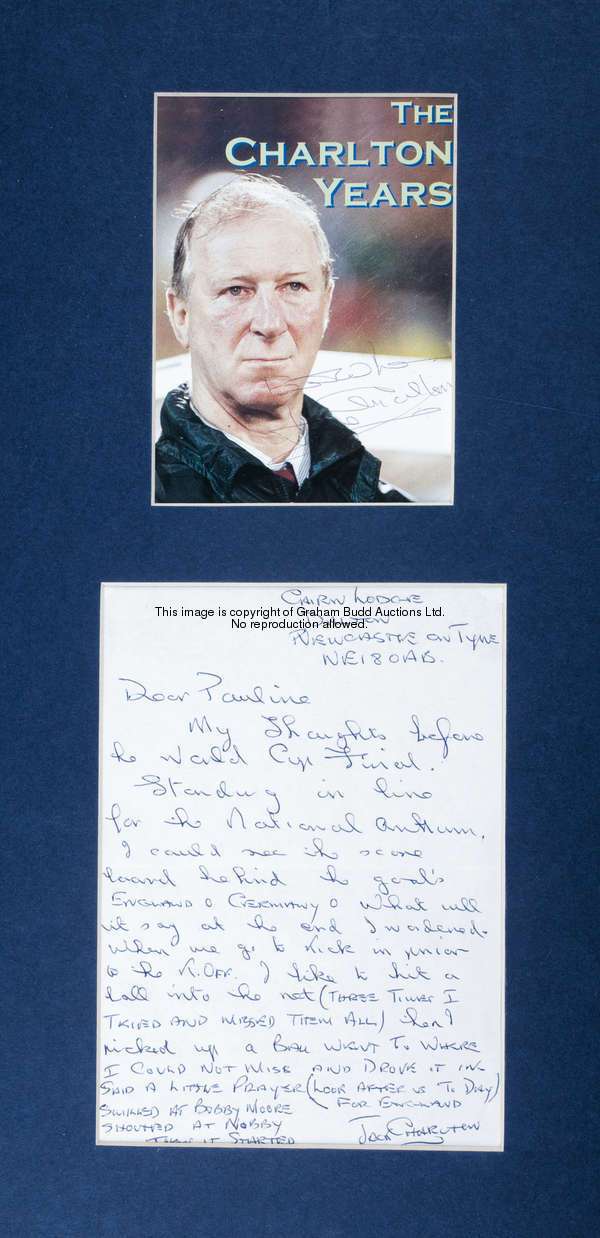 THE
CHARLTON
YEARS
Best Wishes
Jack Charlton
CAIRN LODGE
This image is copyright of Graham Budd Auctions Ltd.
No reproduction allowed.
NEWCASTLE ON TYNE
NE18 0AB.
Dear Pauline
My Thoughts before
the World Cup Final.
Standing in line
for the National anthum,
I could see the score
board behind the goal's
ENGLAND O GERMANY O What will
it say at the end I wondered.
When we go to kick in
to the K.OFF. I like to hit a
ball into the net (THREE TIMES I
TRIED AND MISSED THEM ALL) then I
picked up a BALL WENT TO WHERE
I COULD NOT MISS AND DROVE IT IN
SAID A LITTLE PRAYER (LOOK AFTER US TO DAY)
SMILED AT BOBBY MOORE FOR ENGLAND
SHOUTED AT NOBBY
THEN IT STARTED
JACK CHARLTON